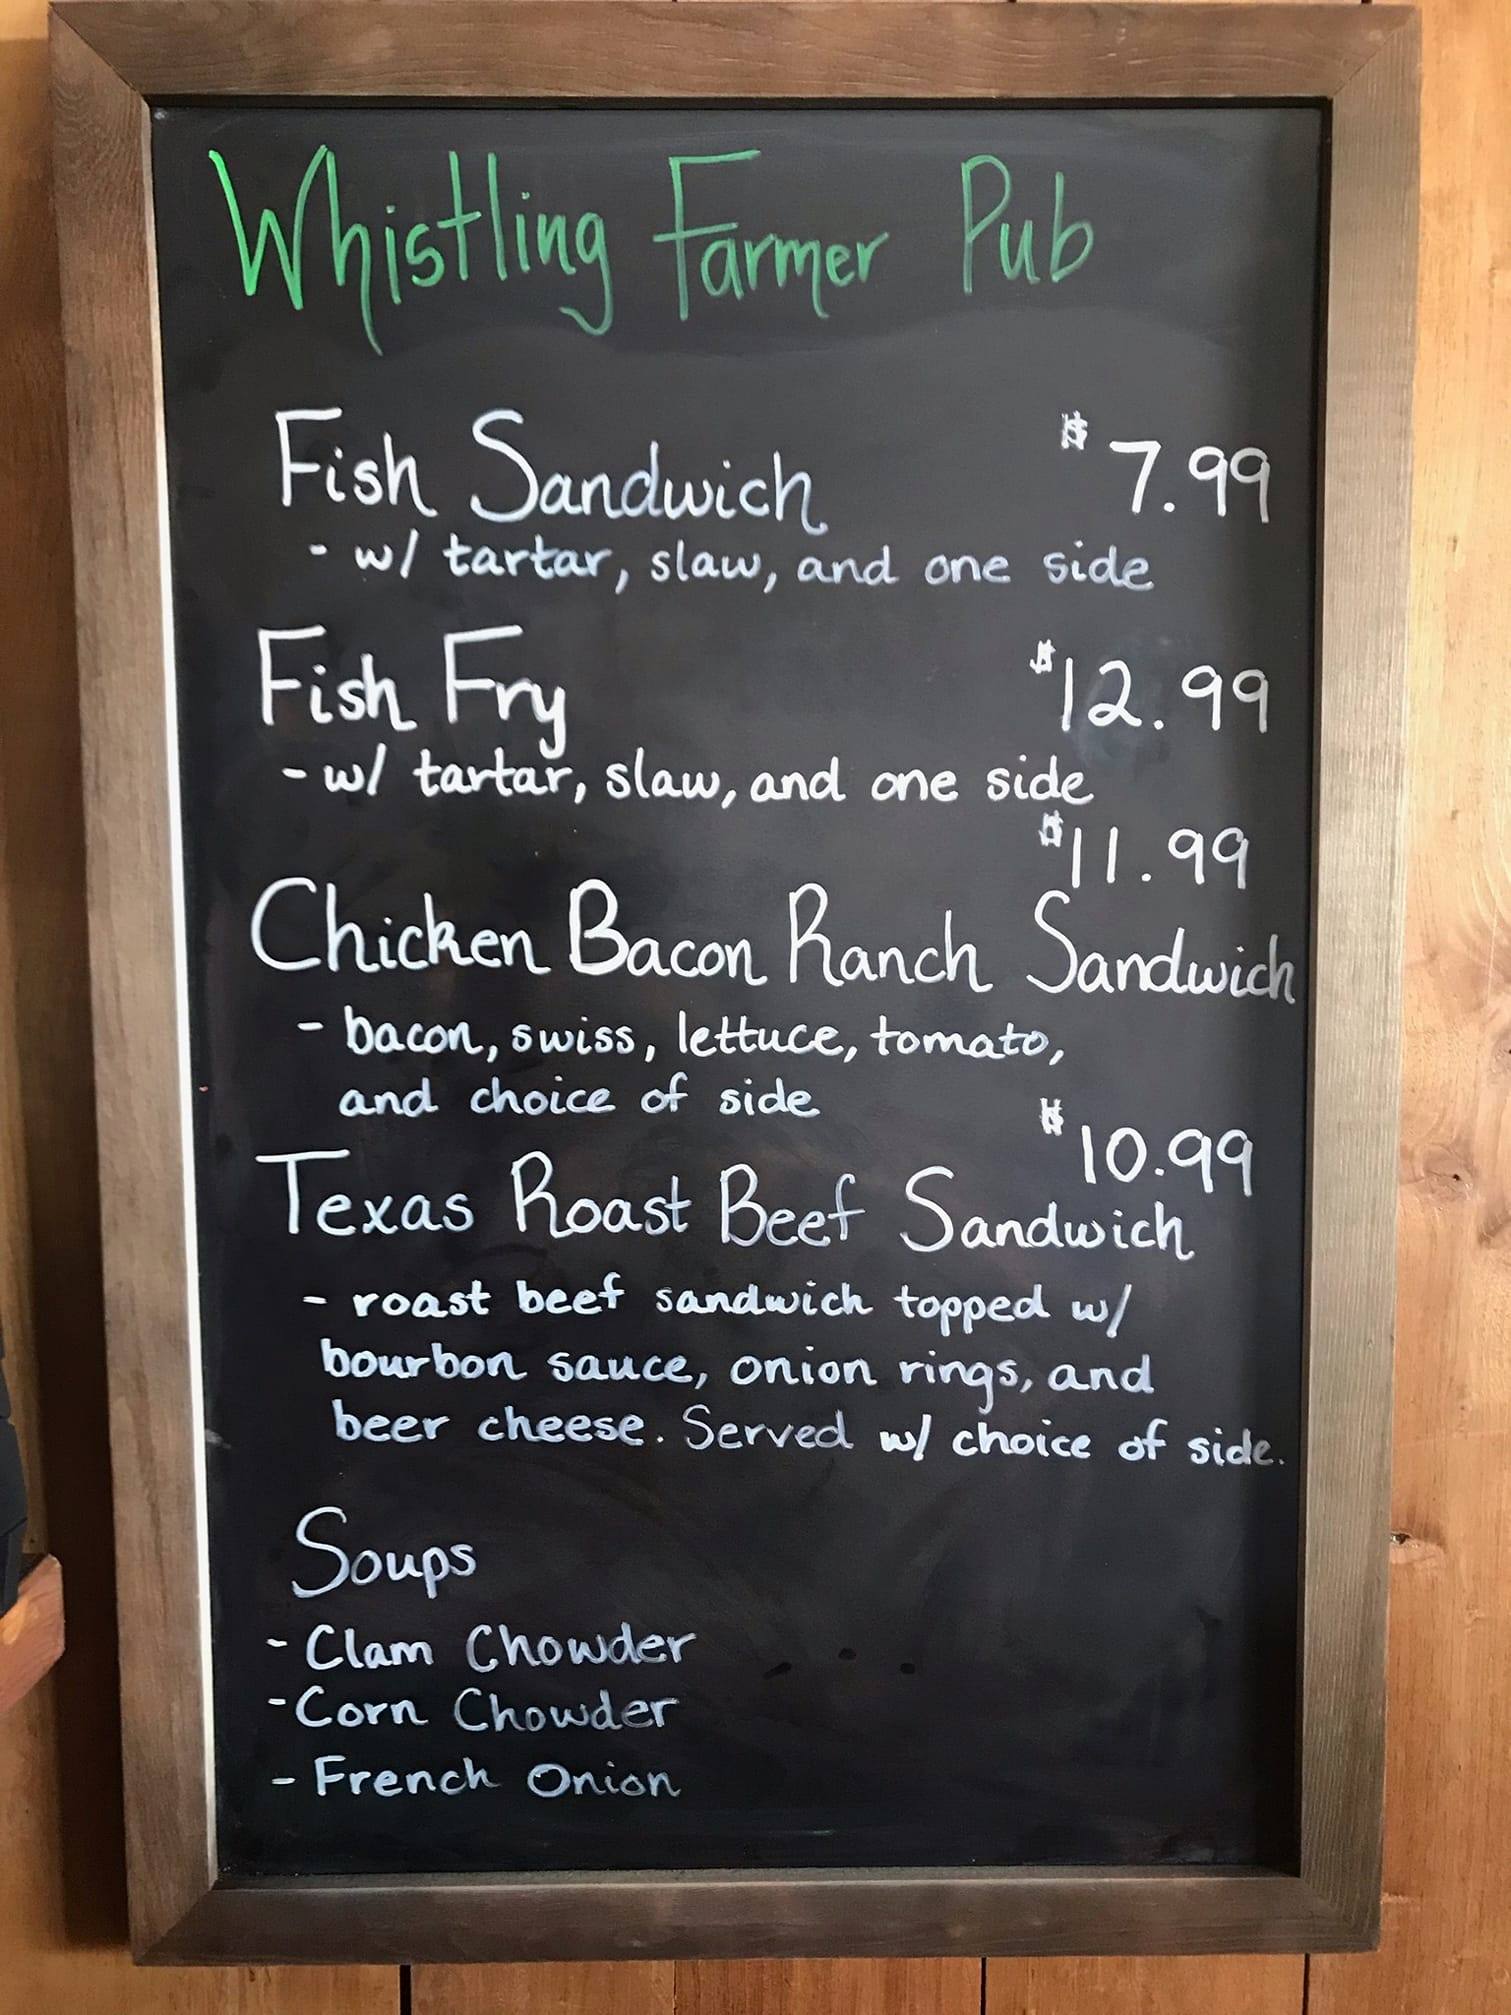 Whistling Farmer Pub
Fish Sandwich $7.99
- w/ tartar, slaw, and one side
Fish Fry $12.99
- w/ tartar, slaw, and one side
$11.99
Chicken Bacon Ranch Sandwich
- bacon, swiss, lettuce, tomato,
and choice of side
$10.99
Texas Roast Beef Sandwich
- roast beef sandwich topped w/
bourbon sauce, onion rings, and
beer cheese. Served w/ choice of side.
Soups
- Clam Chowder
- Corn Chowder
- French Onion